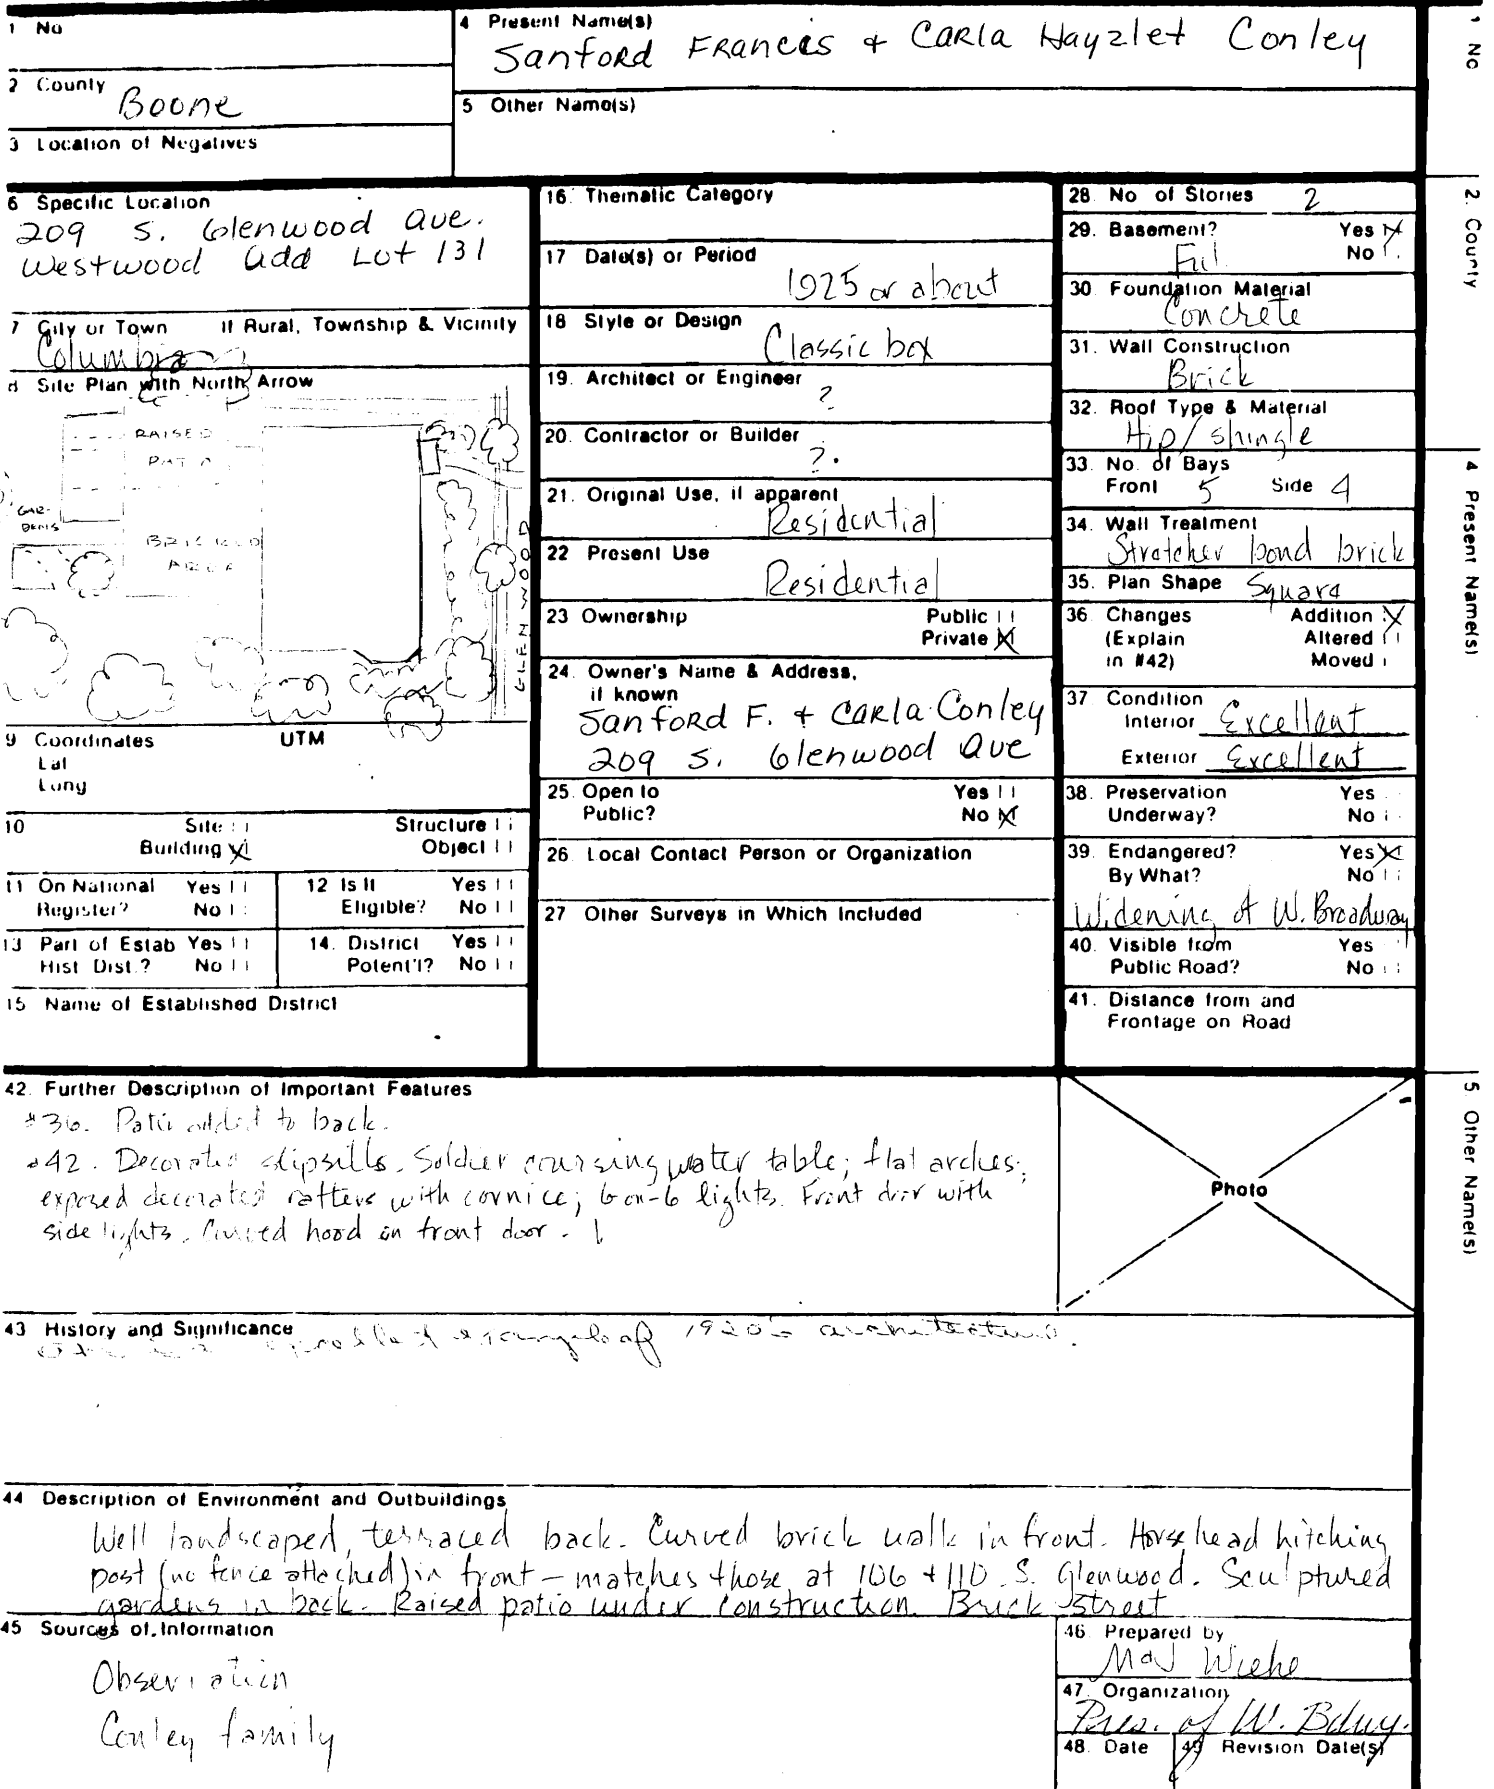 1 No
4 Present Name(s)
Sanford Francis + Carla Hayzlet Conley
2 County
Boone
5 Other Name(s)
3 Location of Negatives
6 Specific Location
209 S. Glenwood Ave.
Westwood Add Lot 131
7 City or Town If Rural, Township & Vicinity
Columbia
8 Site Plan with North Arrow
RAISED
PATIO
GAR-
DENS
BRICKED
AREA
GLENWOOD
9 Coordinates UTM
Lat
Long
10 Site Structure
Building X Object
11 On National Register? Yes No
12 Is It Eligible? Yes No
13 Part of Estab Hist Dist.? Yes No
14. District Potent'l? Yes No
15 Name of Established District
16. Thematic Category
17 Date(s) or Period
1925 or about
18 Style or Design
Classic box
19. Architect or Engineer
?
20. Contractor or Builder
?.
21. Original Use, if apparent
Residential
22 Present Use
Residential
23 Ownership Public
Private X
24. Owner's Name & Address,
if known
Sanford F. + Carla Conley
209 S. Glenwood Ave
25. Open to Yes
Public? No X
26. Local Contact Person or Organization
27 Other Surveys in Which Included
28. No of Stories 2
29. Basement? Yes X
No
30 Foundation Material
Concrete
31. Wall Construction
Brick
32. Roof Type & Material
Hip / shingle
33. No. of Bays
Front 5 Side 4
34. Wall Treatment
Stretcher bond brick
35. Plan Shape Square
36 Changes Addition X
(Explain Altered
in #42) Moved
37 Condition
Interior Excellent
Exterior Excellent
38. Preservation Yes
Underway? No
39. Endangered? Yes X
By What? No
Widening of W. Broadway
40. Visible from Yes
Public Road? No
41. Distance from and
Frontage on Road
42. Further Description of Important Features
#36. Patio added to back.
#42. Decorated slipsills. Soldier coursing water table; flat arches;
exposed decorated rafters with cornice; 6-on-6 lights. Front door with
side lights. Curved hood on front door.
Photo
43 History and Significance
example of 1920's architecture.
44 Description of Environment and Outbuildings
Well landscaped, terraced back. Curved brick walk in front. Horsehead hitching
post (no fence attached) in front - matches those at 106 + 110 S. Glenwood. Sculptured
gardens in back. Raised patio under construction. Brick street
45 Sources of Information
Observation
Conley family
46. Prepared by
Wiehe
47. Organization
Pres. of W. Bdwy.
48. Date
49 Revision Date(s)
1 No
2. County
4 Present Name(s)
5 Other Name(s)